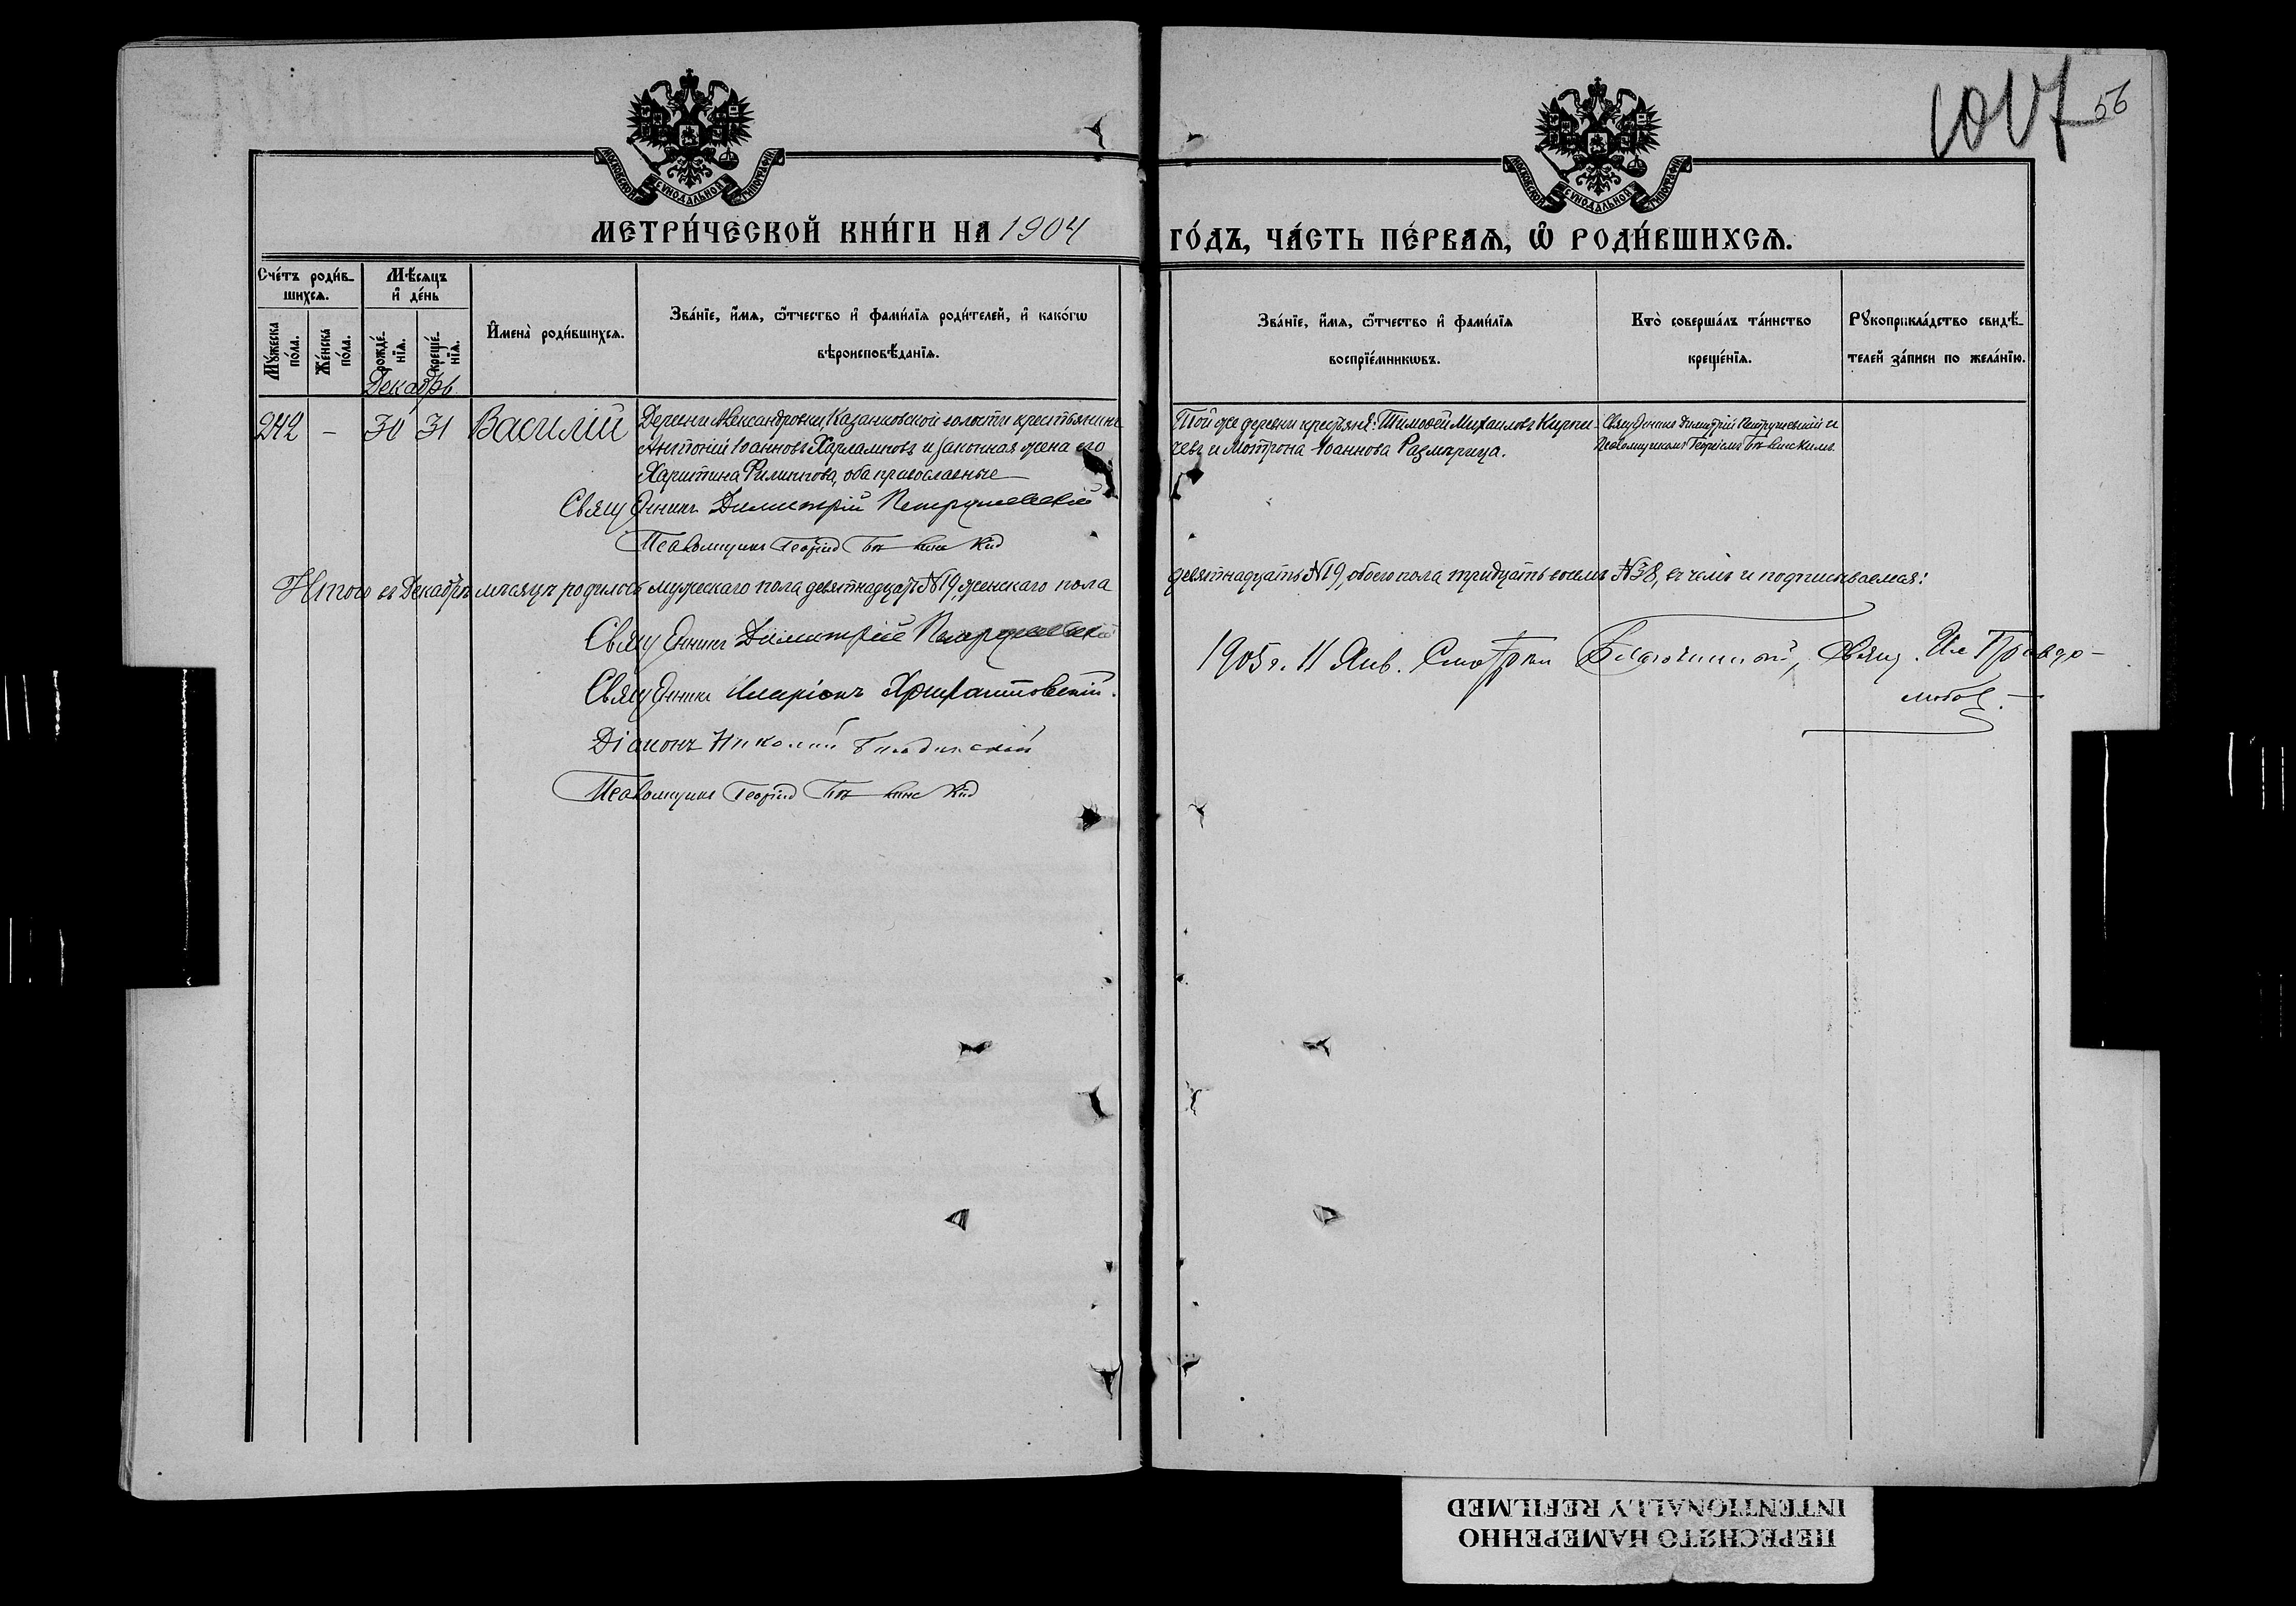 1017 56
МОСКОВСКОЙ СѴНОДАЛЬНОЙ ТИПОГРАФІИ
МОСКОВСКОЙ СѴНОДАЛЬНОЙ ТИПОГРАФІИ
МЕТРИ́ЧЕСКОЙ КНИ́ГИ НА 1904
ГО́ДЪ, ЧА́СТЬ ПЕ́РВАѦ, Ѡ҆ РОДИ́ВШИХСѦ.
Сче́тъ роди́в-
шихсѧ.
Мꙋ́жеска
по́ла.
Же́нска
по́ла.
Мѣ́сѧцъ
и҆ де́нь
рожде́-
нїѧ.
креще́-
нїѧ.
Декабрь
И҆мена̀ роди́вшихсѧ.
Зва́нїе, и҆́мѧ, ѻ҆́тчество и҆ фами́лїѧ роди́телей, и҆ како́гѡ
вѣроисповѣ́данїѧ.
Зва́нїе, и҆́мѧ, ѻ҆́тчество и҆ фами́лїѧ
воспрїе́мникѡвъ.
Кто̀ соверша́лъ та́инство
креще́нїѧ.
Рꙋкоприкла́дство свидѣ́-
телей за́писи по жела́нїю.
242 – 30 31 Василій
Деревни Александровки, Казанковской волости крестьянинъ
Антоній Іоанновъ Харламповъ и законная жена его
Харитина Филиппова, оба православные
Той же деревни крестьяне: Тимофей Михаиловъ Кирпи-
чевъ и Мотрона Іоаннова Размѣрица.
Священникъ Димитрій Петрушевскій и
Псаломщикомъ Георгіемъ
Священникъ Димитрій Петрушевскій
Псаломщикъ Георгій
Итого въ Декабрѣ мѣсяцѣ родилось мужескаго пола девятнадцать №19, женскаго пола
девятнадцать №19, обоего пола тридцать восемь №38, въ чемъ и подписываемся:
Священникъ Димитрій Петрушевскій
Священникъ Иларіонъ Хрисанѳовскій.
Діаконъ Николай
Псаломщикъ Георгій
1905 г. 11 Янв. Смотрѣлъ Благочинный, Свящ. Правдо-
любов.
ПЕРЕСНЯТО НАМЕРЕННО
INTENTIONALLY REFILMED